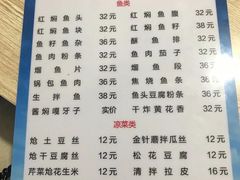 鱼类
红焖鱼头 32元 红焖鱼腹 32元
红焖鱼块 32元 红焖鱼籽 38元
鱼籽鱼杂 36元 酥鱼排 32元
鱼肉粉条 32元 鱼肉茄子 32元
熘鱼片 36元 焦烧鱼条 36元
锅包鱼肉 36元 鱼头豆腐粉条 36元
生拌鱼 38元 干炸黄花香 32元
酱焖嘎牙子 实价
凉菜类
炝土豆丝 12元 金针蘑拌瓜丝 12元
炝干豆腐丝 12元 松花豆腐 12元
芹菜炝花生米 12元 清拌拉皮 16元